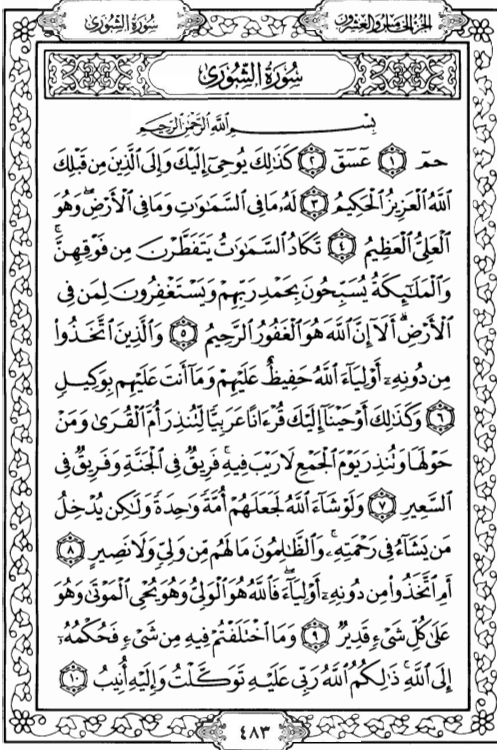 سُورَةُ الشُّورَىٰ
الجُزءُ الخَامِسُ وَالعِشرُونَ
سُورَةُ الشُّورَىٰ
بِسْمِ اللَّهِ الرَّحْمَٰنِ الرَّحِيمِ
حمٓ ١ عٓسٓقٓ ٢ كَذَٰلِكَ يُوحِيٓ إِلَيْكَ وَإِلَى ٱلَّذِينَ مِن قَبْلِكَ
ٱللَّهُ ٱلْعَزِيزُ ٱلْحَكِيمُ ٣ لَهُۥ مَا فِي ٱلسَّمَٰوَٰتِ وَمَا فِي ٱلْأَرْضِۖ وَهُوَ
ٱلْعَلِيُّ ٱلْعَظِيمُ ٤ تَكَادُ ٱلسَّمَٰوَٰتُ يَتَفَطَّرْنَ مِن فَوْقِهِنَّۚ
وَٱلْمَلَٰٓئِكَةُ يُسَبِّحُونَ بِحَمْدِ رَبِّهِمْ وَيَسْتَغْفِرُونَ لِمَن فِي
ٱلْأَرْضِۗ أَلَآ إِنَّ ٱللَّهَ هُوَ ٱلْغَفُورُ ٱلرَّحِيمُ ٥ وَٱلَّذِينَ ٱتَّخَذُوا۟
مِن دُونِهِۦٓ أَوْلِيَآءَ ٱللَّهُ حَفِيظٌ عَلَيْهِمْ وَمَآ أَنتَ عَلَيْهِم بِوَكِيلٍ
٦ وَكَذَٰلِكَ أَوْحَيْنَآ إِلَيْكَ قُرْءَانًا عَرَبِيًّا لِّتُنذِرَ أُمَّ ٱلْقُرَىٰ وَمَنْ
حَوْلَهَا وَتُنذِرَ يَوْمَ ٱلْجَمْعِ لَا رَيْبَ فِيهِۚ فَرِيقٌ فِي ٱلْجَنَّةِ وَفَرِيقٌ فِي
ٱلسَّعِيرِ ٧ وَلَوْ شَآءَ ٱللَّهُ لَجَعَلَهُمْ أُمَّةً وَٰحِدَةً وَلَٰكِن يُدْخِلُ
مَن يَشَآءُ فِي رَحْمَتِهِۦۚ وَٱلظَّٰلِمُونَ مَا لَهُم مِّن وَلِيٍّ وَلَا نَصِيرٍ ٨
أَمِ ٱتَّخَذُوا۟ مِن دُونِهِۦٓ أَوْلِيَآءَۖ فَٱللَّهُ هُوَ ٱلْوَلِيُّ وَهُوَ يُحْيِ ٱلْمَوْتَىٰ وَهُوَ
عَلَىٰ كُلِّ شَيْءٍ قَدِيرٌ ٩ وَمَا ٱخْتَلَفْتُمْ فِيهِ مِن شَيْءٍ فَحُكْمُهُۥٓ
إِلَى ٱللَّهِۚ ذَٰلِكُمُ ٱللَّهُ رَبِّي عَلَيْهِ تَوَكَّلْتُ وَإِلَيْهِ أُنِيبُ ١٠
٤٨٣